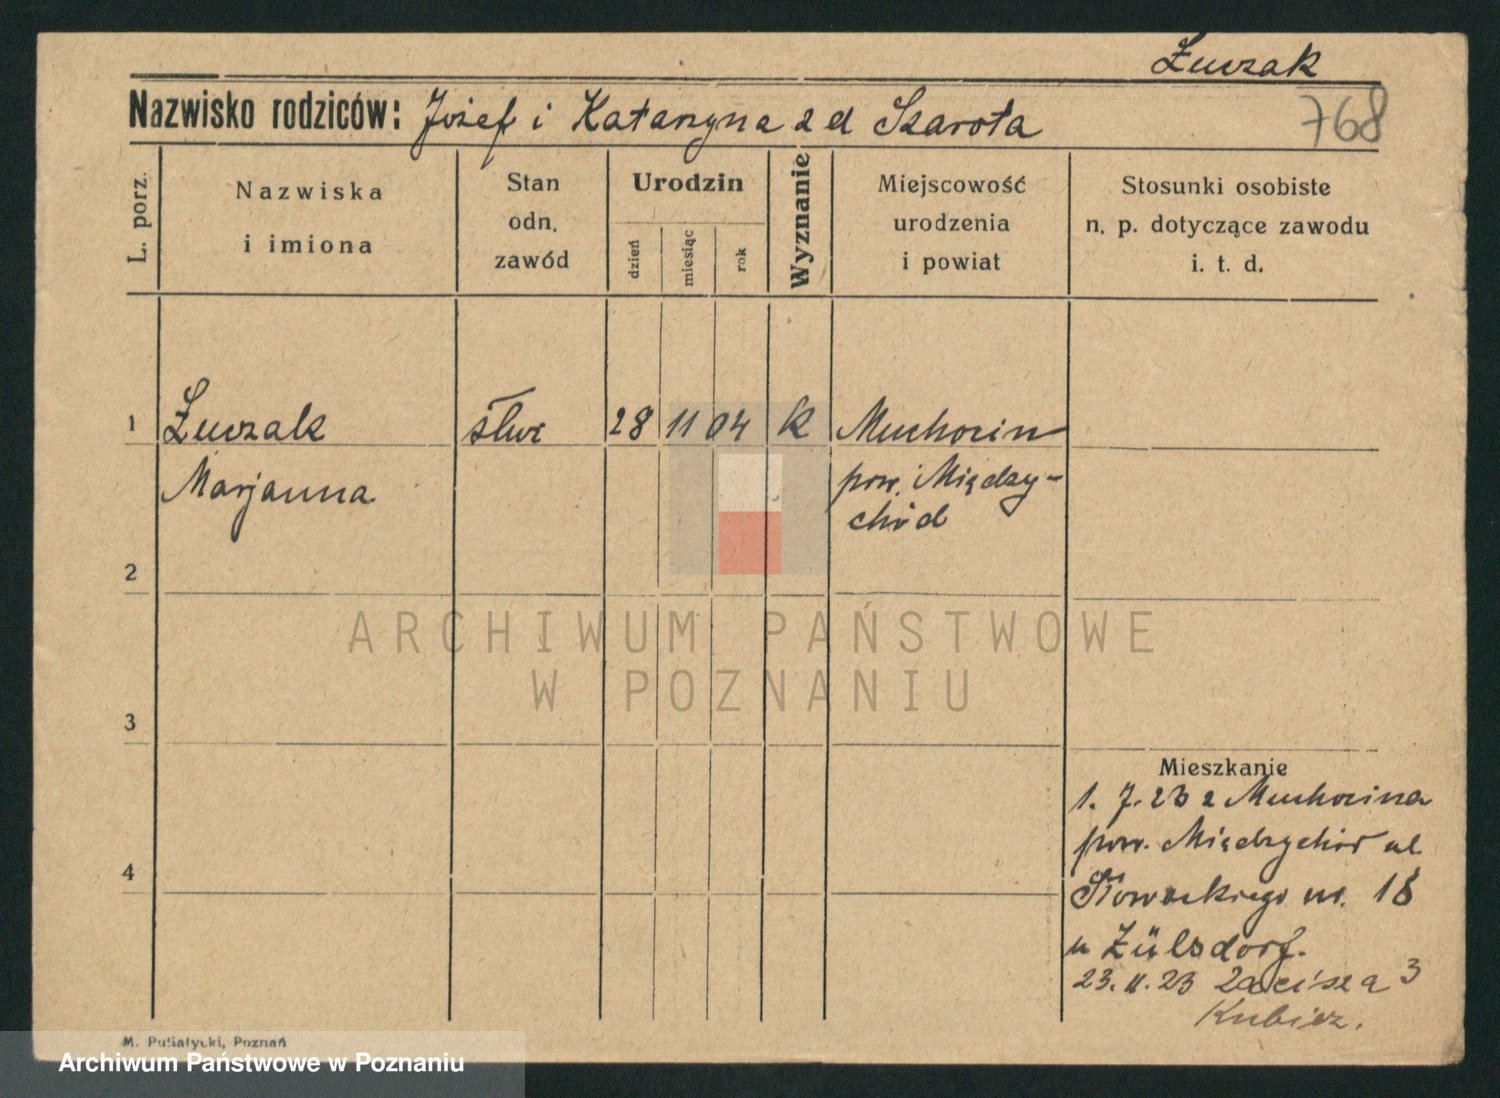 Żuwzak
Nazwisko rodziców: Józef i Katarzyna z d Szarota
768
L. porz.
Nazwiska
i imiona
Stan
odn.
zawód
Urodzin
dzień
miesiąc
rok
Wyznanie
Miejscowość
urodzenia
i powiat
Stosunki osobiste
n. p. dotyczące zawodu
i. t. d.
1
Żuwzak
służ
28 11 04
K
Muchocin
Marjanna
pow. Między-
chód
2
3
4
Mieszkanie
1. 7. 23 z Muchocina
pow. Międzychód ul
Słowackiego nr. 18
u Zülsdorf.
23. 11. 23 Zacisza 3
Kubicz.
M. Pusiatycki, Poznań
ARCHIWUM PAŃSTWOWE
W POZNANIU
Archiwum Państwowe w Poznaniu